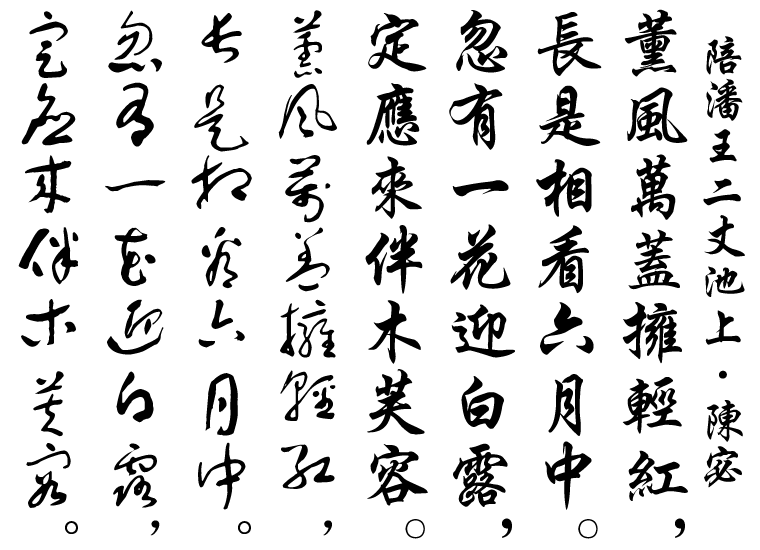 陪潘王二丈池上·陳宓
薰風萬蓋擁輕紅，
長是相看六月中。
忽有一花迎白露，
定應來伴木芙容。
薰風萬蓋擁輕紅，
長是相看六月中。
忽有一花迎白露，
定應來伴木芙容。